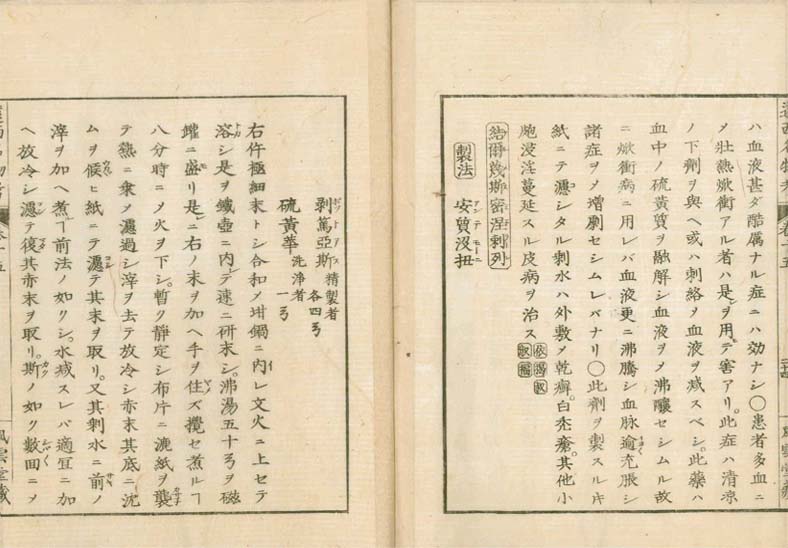 ハ血液甚ダ酷厲ナル症ニハ効ナシ〇患者多血ニ
〆壯熱焮衝アル者ハ是ヲ用テ害アリ。此症ハ清凉
ノ下劑ヲ與ヘ或ハ刺絡〆血液ヲ减スベシ。此藥ハ
血中ノ硫黄質ヲ融解シ血液ヲ〆沸釀セシムル故
ニ焮衝病ニ用レバ血液更ニ沸騰シ血脉愈充脹シ
諸症ヲ〆増劇セシムレバナリ〇此劑ヲ製スル片
紙ニテ濾シタル剰水ハ外敷〆乾癬。白禿瘡。其他小
皰浸淫蔓延スル皮病ヲ治ス
結爾幾斯密涅剌列
製法 安質没扭
剥篤亞斯 精製者 各四ㄢ
硫黄華 洗淨者 一ㄢ
右件極細末トシ合和〆坩鍋ニ内レ文火ニ上セテ
溶シ是ヲ鐵壺ニ内テ速ニ研末シ。沸湯五十ㄢヲ磁
罐ニ盛リ是ニ右ノ末ヲ加ヘ手ヲ住ズ攪セ煮ルヿ
八分時ニ〆火ヲ下シ。暫ク靜定シ布片ニ漉紙ヲ襲
テ熱ニ乗〆濾過シ滓ヲ去テ放冷シ赤末其底ニ沈
ムヲ候ヒ紙ニテ濾テ其末ヲ取リ。又其剰水ニ前ノ
滓ヲ加ヘ煮ヿ前法ノ如クシ。水减スレバ適宜ニ加
ヘ放冷シ濾テ復其赤末ヲ取リ。斯ノ如ク數回ニ〆